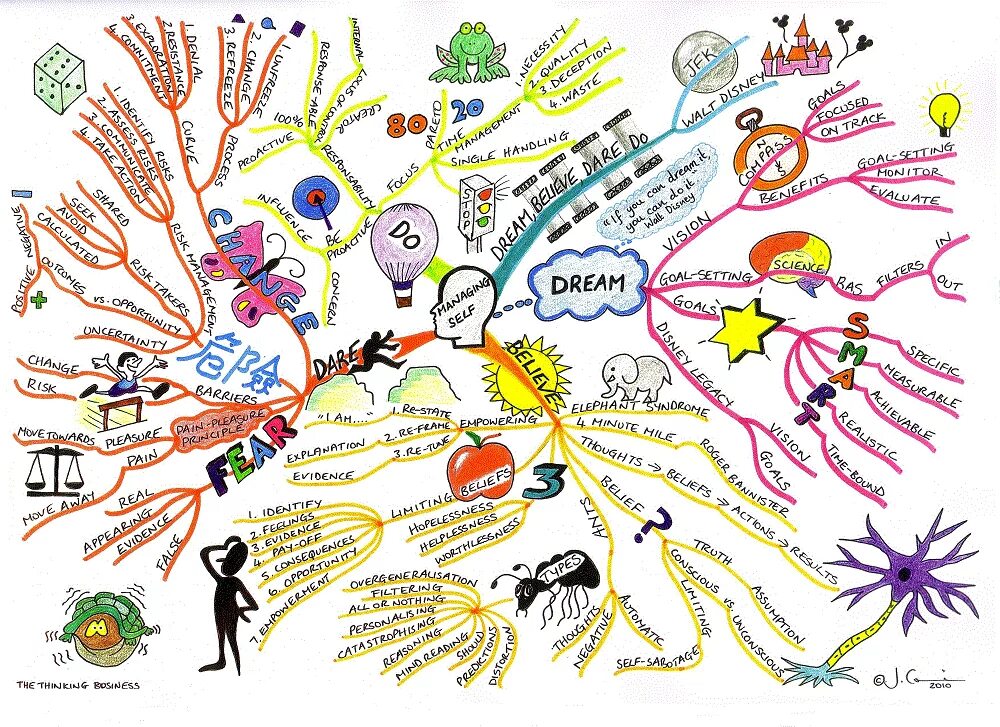 MANAGING
SELF
DREAM
"If you can dream it,
you can do it
Walt Disney
DREAM BELIEVE DARE DO
JFK
WALT DISNEY
VISION
COMPASS
N
S
GOALS
FOCUSED
ON TRACK
BENEFITS
GOAL-SETTING
MONITOR
EVALUATE
GOAL-SETTING
SCIENCE
RAS
FILTERS
IN
OUT
GOALS
SMART
SPECIFIC
MEASURABLE
ACHIEVABLE
REALISTIC
TIME-BOUND
DISNEY LEGACY
VISION
GOALS
BELIEVE
ELEPHANT SYNDROME
4 MINUTE MILE
ROGER BANNISTER
THOUGHTS → BELIEFS → ACTIONS → RESULTS
BELIEF
?
TRUTH
ASSUMPTION
CONSCIOUS vs. UNCONSCIOUS
LIMITING
SELF-SABOTAGE
ANTS
AUTOMATIC
NEGATIVE
THOUGHTS
TYPES
OVERGENERALISATION
FILTERING
ALL OR NOTHING
PERSONALISING
CATASTROPHISING
REASONING
MIND READING
SHOULD
PREDICTIONS
DISTORTION
3
BELIEFS
EMPOWERING
1. RE-STATE
"I AM...."
2. RE-FRAME
EXPLANATION
3. RE-TUNE
EVIDENCE
LIMITING
HOPELESSNESS
HELPLESSNESS
WORTHLESSNESS
1. IDENTIFY
2. FEELINGS
3. EVIDENCE
4. PAY-OFF
5. CONSEQUENCES
6. OPPORTUNITY
7. EMPOWERMENT
DARE
FEAR
BARRIERS
CHANGE
RISK
PAIN-PLEASURE
PRINCIPLE
PLEASURE
MOVE TOWARDS
PAIN
MOVE AWAY
FALSE
EVIDENCE
APPEARING
REAL
CHANGE
危險
RISK MANAGEMENT
1. IDENTIFY RISKS
2. ASSESS RISKS
3. COMMUNICATE
4. TAKE ACTION
RISK TAKERS
SHARED
SEEK
AVOID
CALCULATED
vs. OPPORTUNITY
OUTCOMES
NEGATIVE
POSITIVE
UNCERTAINTY
CURVE
1. DENIAL
2. RESISTANCE
3. EXPLORATION
4. COMMITMENT
PROCESS
1. UNFREEZE
2. CHANGE
3. REFREEZE
DO
BE
PROACTIVE
INFLUENCE
CONCERN
RESPONSIBILITY
PROACTIVE
100%
RESPONSE-ABLE
LOCUS OF CONTROL
INTERNAL
CREATOR
FOCUS
PARETO
80
20
TIME
MANAGEMENT
1. NECESSITY
2. QUALITY
3. DECEPTION
4. WASTE
SINGLE HANDLING
STOP
THE THINKING BUSINESS
2010